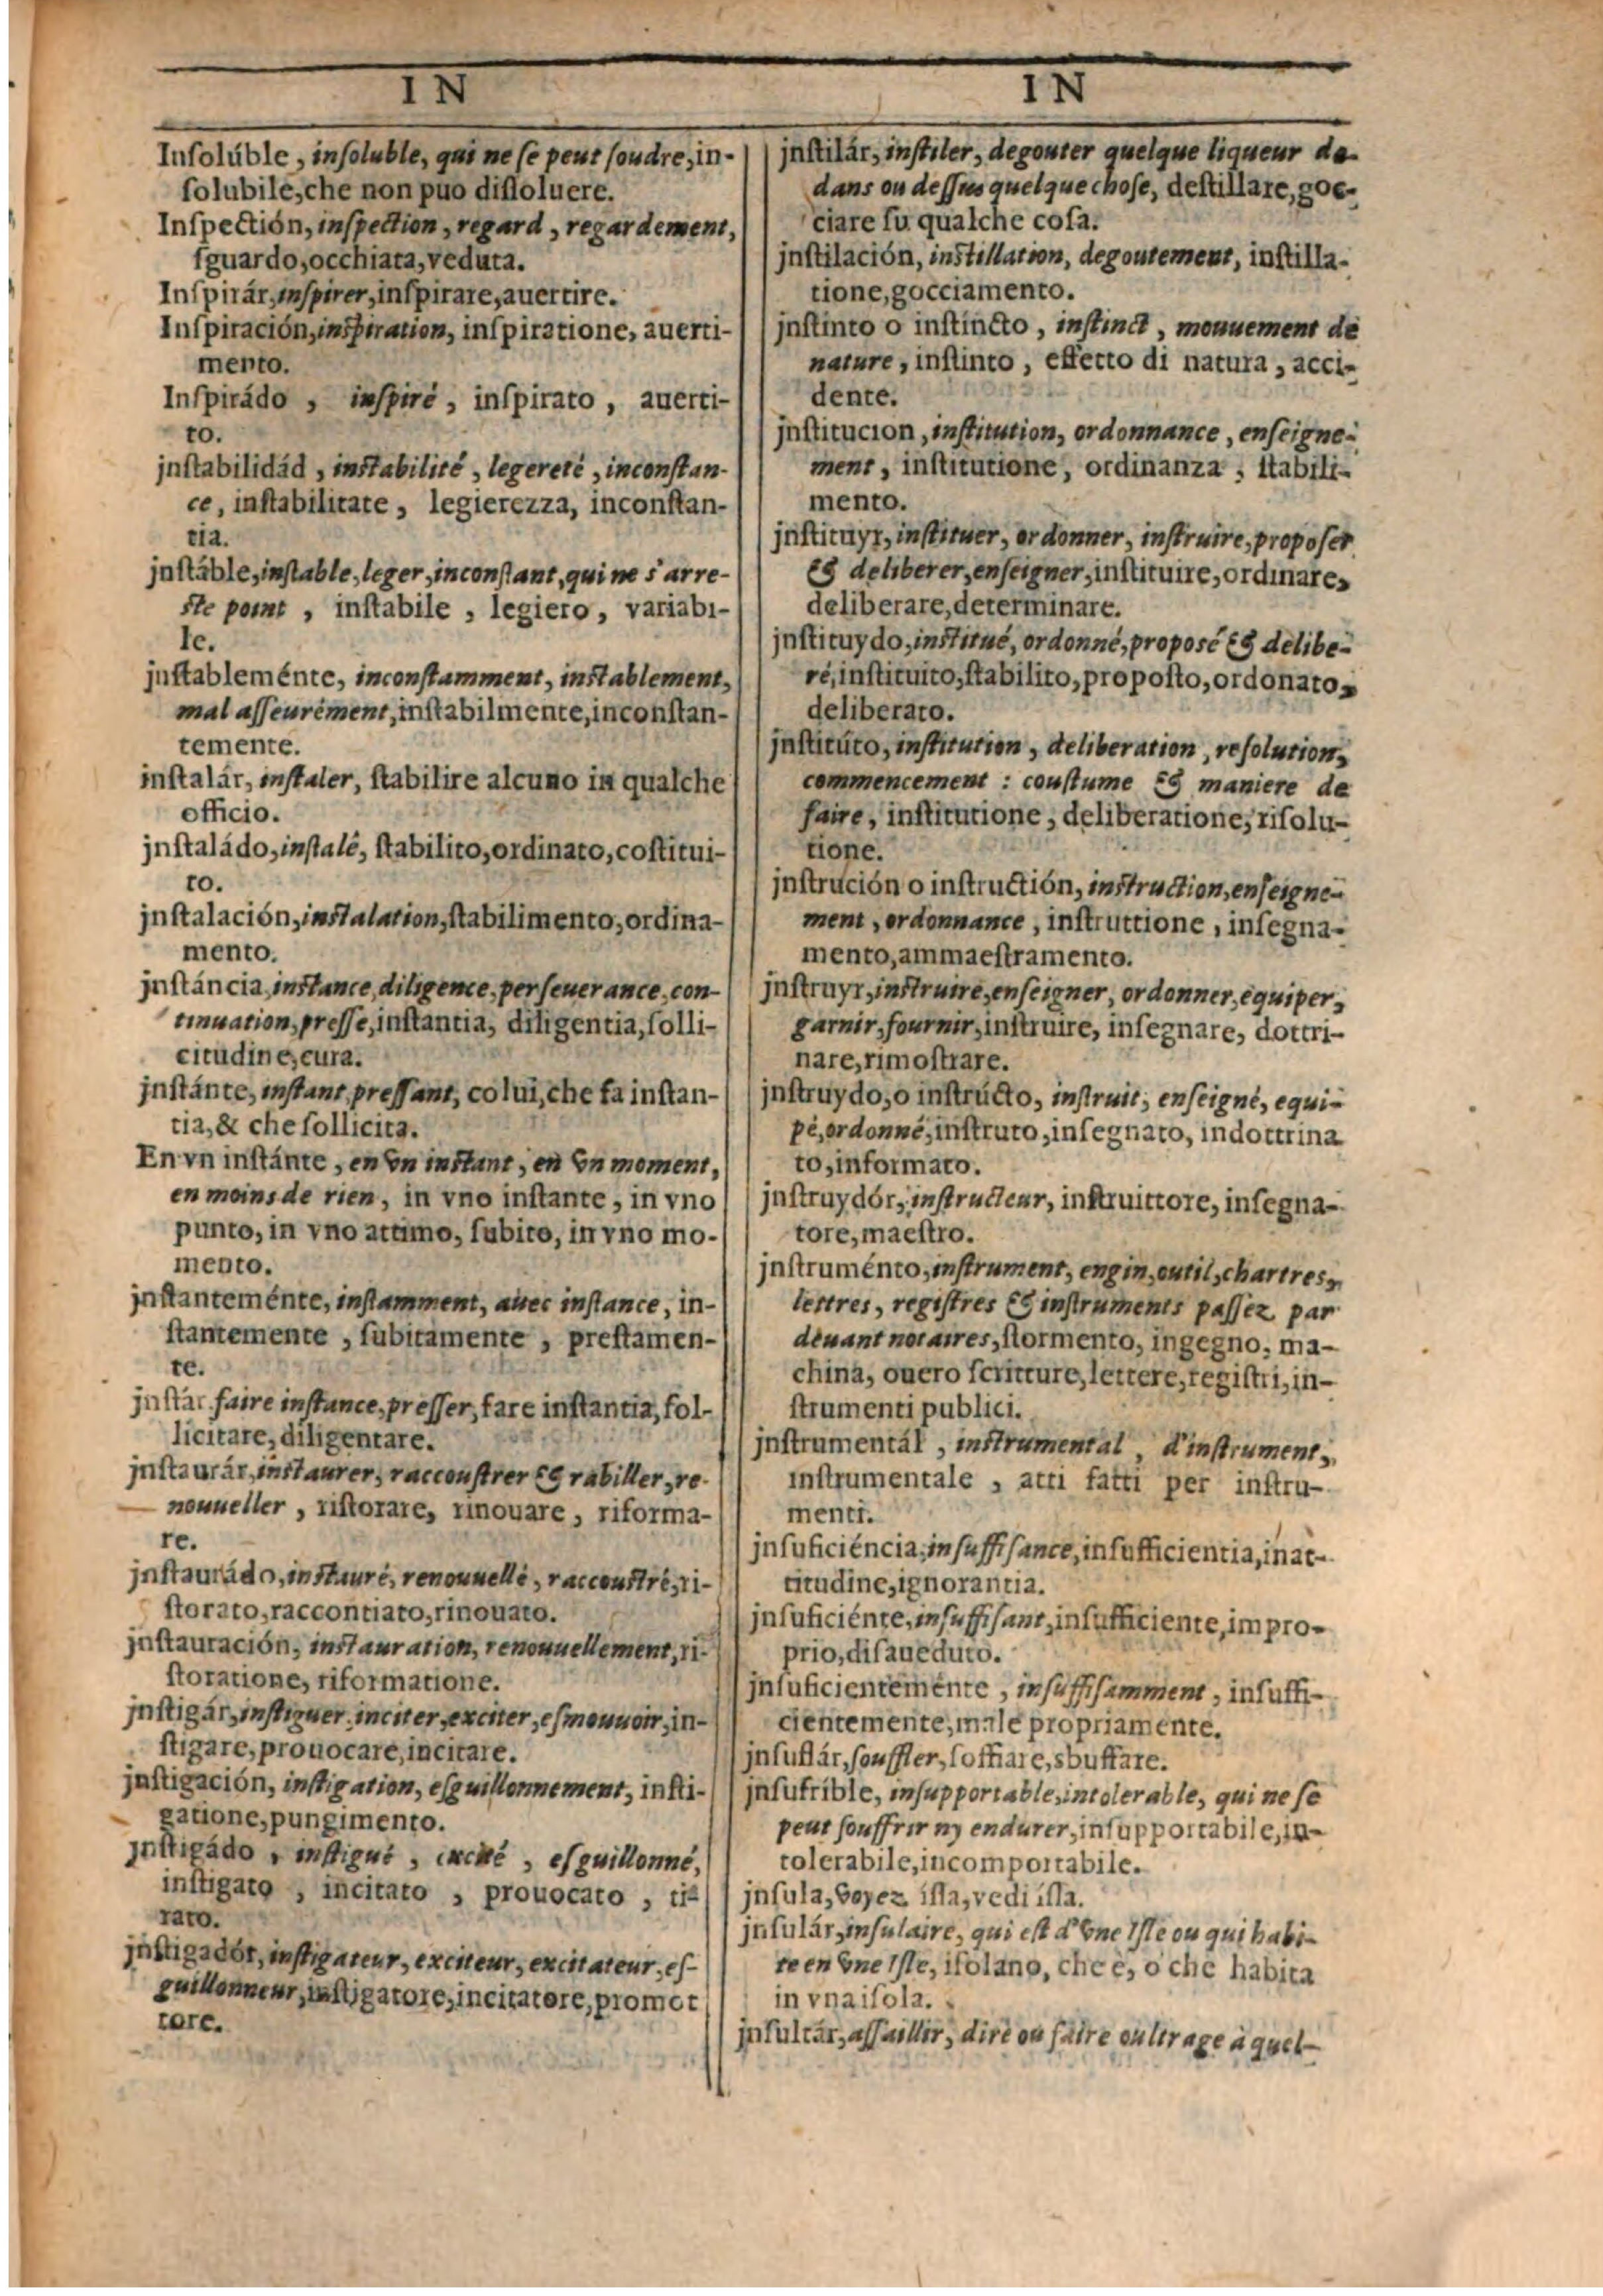 IN
Insolúble, insoluble, qui ne se peut soudre, in-
solubile, che non puo dissoluere.
Inspectión, inspection, regard, regardement,
sguardo, occhiata, veduta.
Inspirár, inspirer, inspirare, auertire.
Inspiración, inspiration, inspiratione, auerti-
mento.
Inspirádo, inspiré, inspirato, auerti-
to.
jnstabilidád, instabilité, legereté, inconstan-
ce, instabilitate, legierezza, inconstan-
tia.
jnstáble, instable, leger, inconstant, qui ne s'arre-
ste point, instabile, legiero, variabi-
le.
jnstableménte, inconstamment, instablement,
mal asseurément, instabilmente, inconstan-
temente.
instalár, instaler, stabilire alcuno in qualche
officio.
jnstaládo, instalé, stabilito, ordinato, costitui-
to.
jnstalación, instalation, stabilimento, ordina-
mento.
jnstáncia, instance, diligence, perseuerance, con-
tinuation, presse, instantia, diligentia, solli-
citudine, cura.
jnstánte, instant, pressant, colui, che fa instan-
tia, & che sollicita.
En vn instánte, en vn instant, en vn moment,
en moins de rien, in vno instante, in vno
punto, in vno attimo, subito, in vno mo-
mento.
jnstanteménte, instamment, auec instance, in-
stantemente, subitamente, prestamen-
te.
jnstár faire instance, presser, fare instantia, sol-
licitare, diligentare.
jnstaurár, instaurer, raccoustrer & rabiller, re-
nouueller, ristorare, rinouare, riforma-
re.
jnstaurádo, instauré, renouuellé, raccoustré, ri-
storato, raccontiato, rinouato.
jnstauración, instauration, renouuellement, ri-
storatione, riformatione.
jnstigár, instiguer, inciter, exciter, esmouuoir, in-
stigare, prouocare, incitare.
jnstigación, instigation, esguillonnement, insti-
gatione, pungimento.
jnstigádo, instigué, excité, esguillonné,
instigato, incitato, prouocato, ti-
rato.
jnstigadór, instigateur, exciteur, excitateur, es-
guillonneur, instigatore, incitatore, promot
tore.
IN
jnstilár, instiler, degouter quelque liqueur de-
dans ou dessus quelque chose, destillare, goc-
ciare su qualche cosa.
jnstilación, instillation, degoutement, instilla-
tione, gocciamento.
jnstinto o instincto, instinct, mouuement de
nature, instinto, effetto di natura, acci-
dente.
jnstitucion, institution, ordonnance, enseigne-
ment, institutione, ordinanza, stabili-
mento.
jnstituyr, instituer, ordonner, instruire, proposer
& deliberer, enseigner, instituire, ordinare,
deliberare, determinare.
jnstituydo, institué, ordonné, proposé & delibe-
ré, instituito, stabilito, proposto, ordonato,
deliberato.
jnstitúto, institution, deliberation, resolution,
commencement : coustume & maniere de
faire, institutione, deliberatione, risolu-
tione.
jnstrución o instructión, instruction, enseigne-
ment, ordonnance, instruttione, insegna-
mento, ammaestramento.
jnstruyr, instruire, enseigner, ordonner, equiper,
garnir, fournir, instruire, insegnare, dottri-
nare, rimostrare.
jnstruydo, o instrúcto, instruit, enseigné, equi-
pé, ordonné, instruto, insegnato, indottrina
to, informato.
jnstruydór, instructeur, instruittore, insegna-
tore, maestro.
jnstruménto, instrument, engin, outil, chartres,
lettres, registres & instruments passez par
deuant notaires, stormento, ingegno, ma-
china, ouero scritture, lettere, registri, in-
strumenti publici.
jnstrumentál, instrumental, d'instrument,
instrumentale, atti fatti per instru-
menti.
jnsuficiéncia, insuffisance, insufficientia, inat-
titudine, ignorantia.
jnsuficiénte, insuffisant, insufficiente, impro-
prio, disaueduto.
jnsuficienteménte, insuffisamment, insuffi-
cientemente, male propriamente.
jnsuflár, souffler, soffiare, sbuffare.
jnsufrible, insupportable, intolerable, qui ne se
peut souffrir ny endurer, insupportabile, in-
tolerabile, incomportabile.
jnsula, voyez isla, vedi isla.
jnsulár, insulaire, qui est d'vne Isle ou qui habi-
te en vne Isle, isolano, che è, o che habita
in vna isola.
jnsultár, assaillir, dire ou faire oultrage à quel-